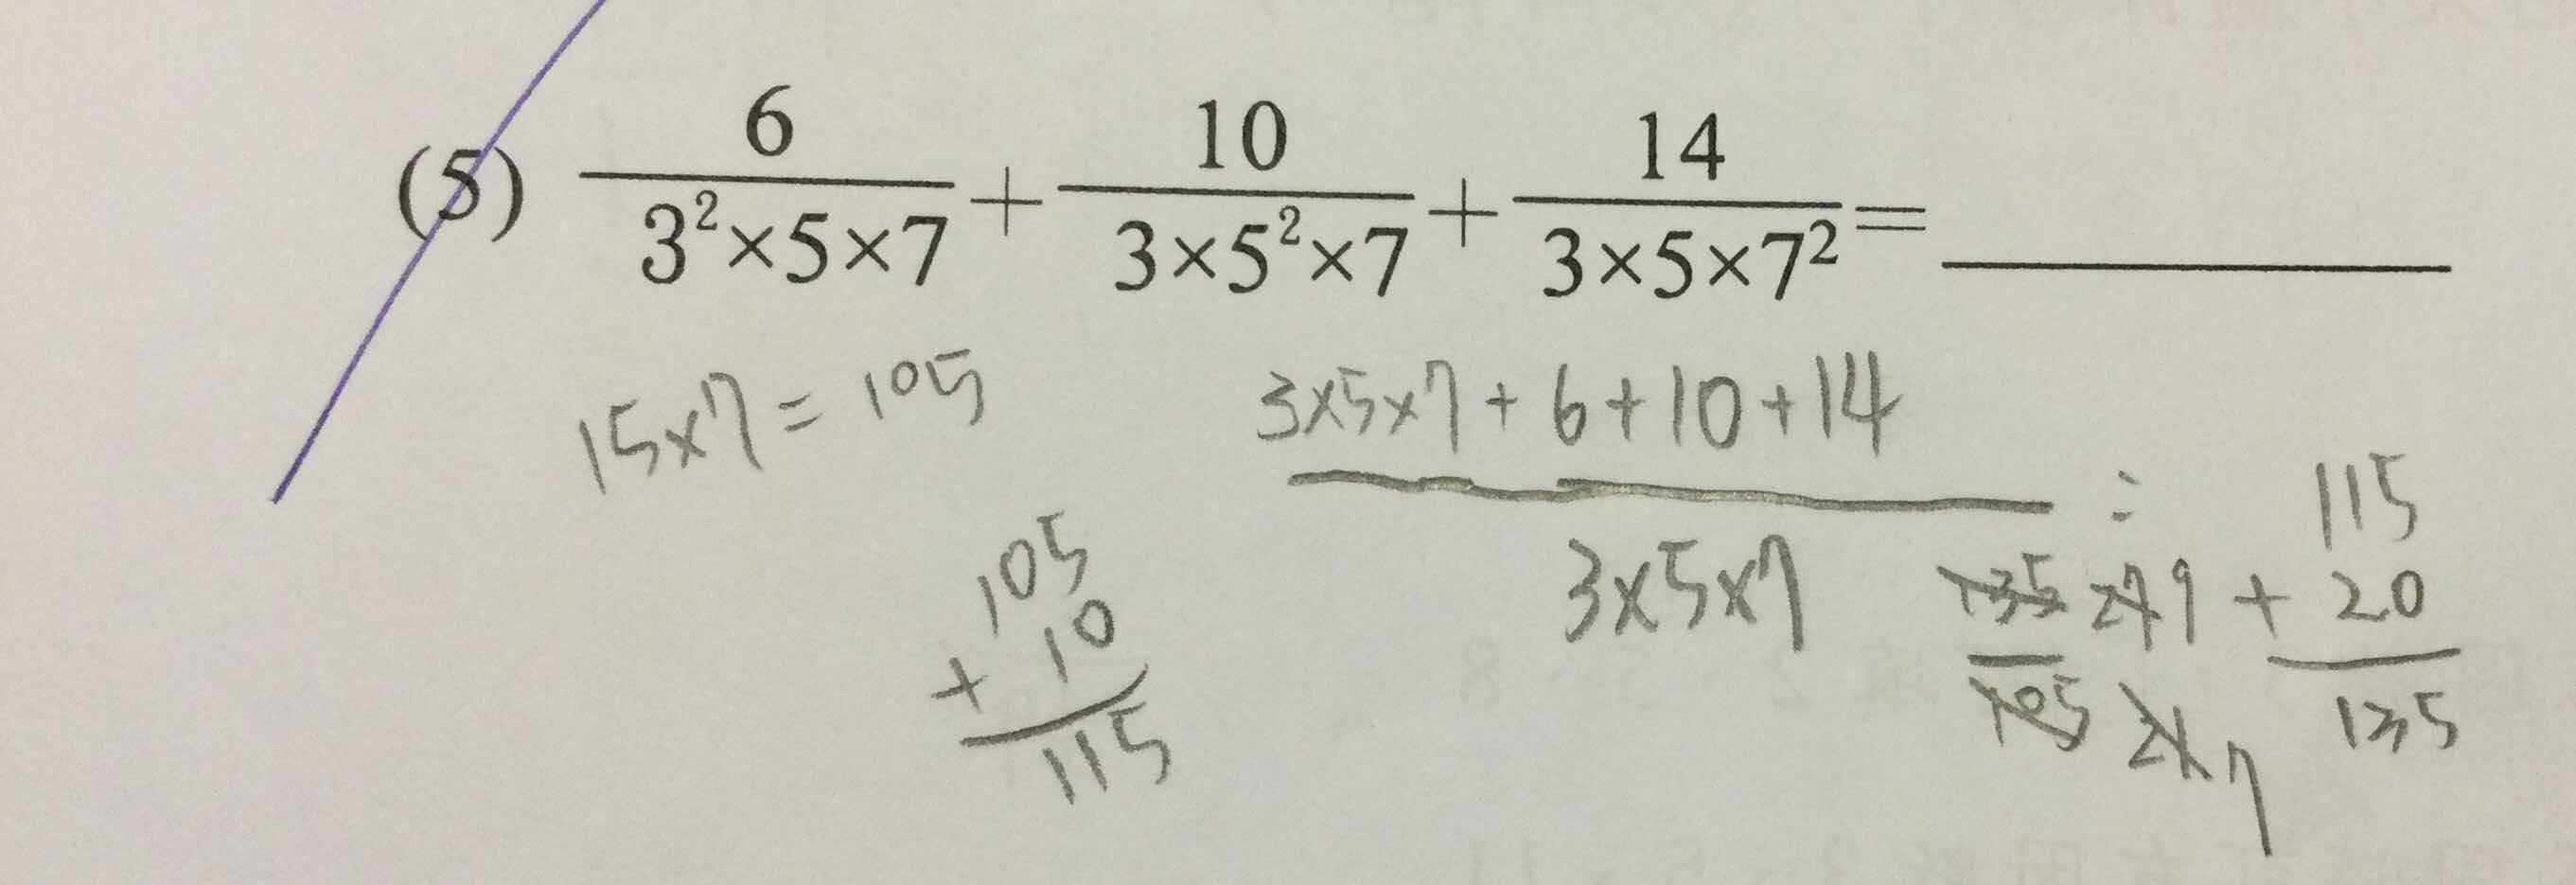 (5) 6/(3²×5×7) + 10/(3×5²×7) + 14/(3×5×7²) = ______
15×7=105
3×5×7+6+10+14
3×5×7
=
105
+ 10
115
135
105
9
7
115
+ 20
135